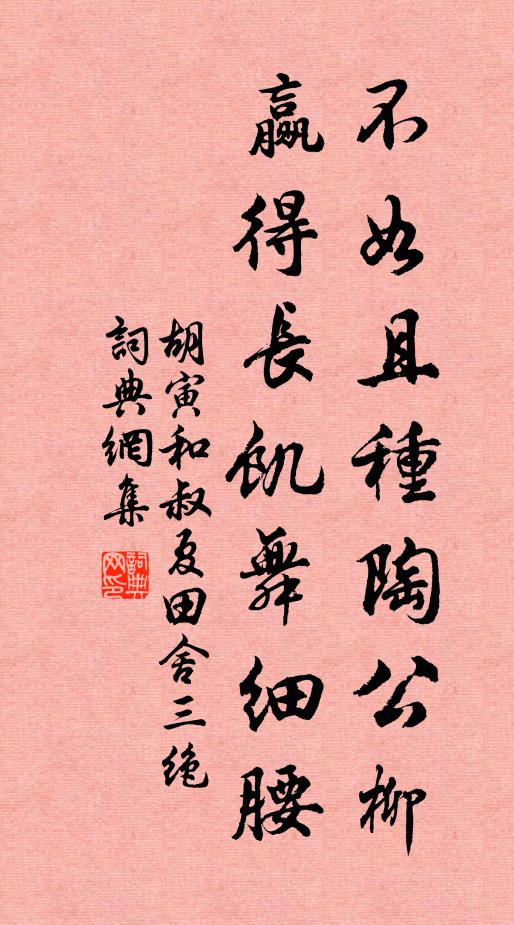 不如且種陶公柳
贏得長飢舞細腰
胡寅和叔夏田舍三絶
詞典網集
詞典网印